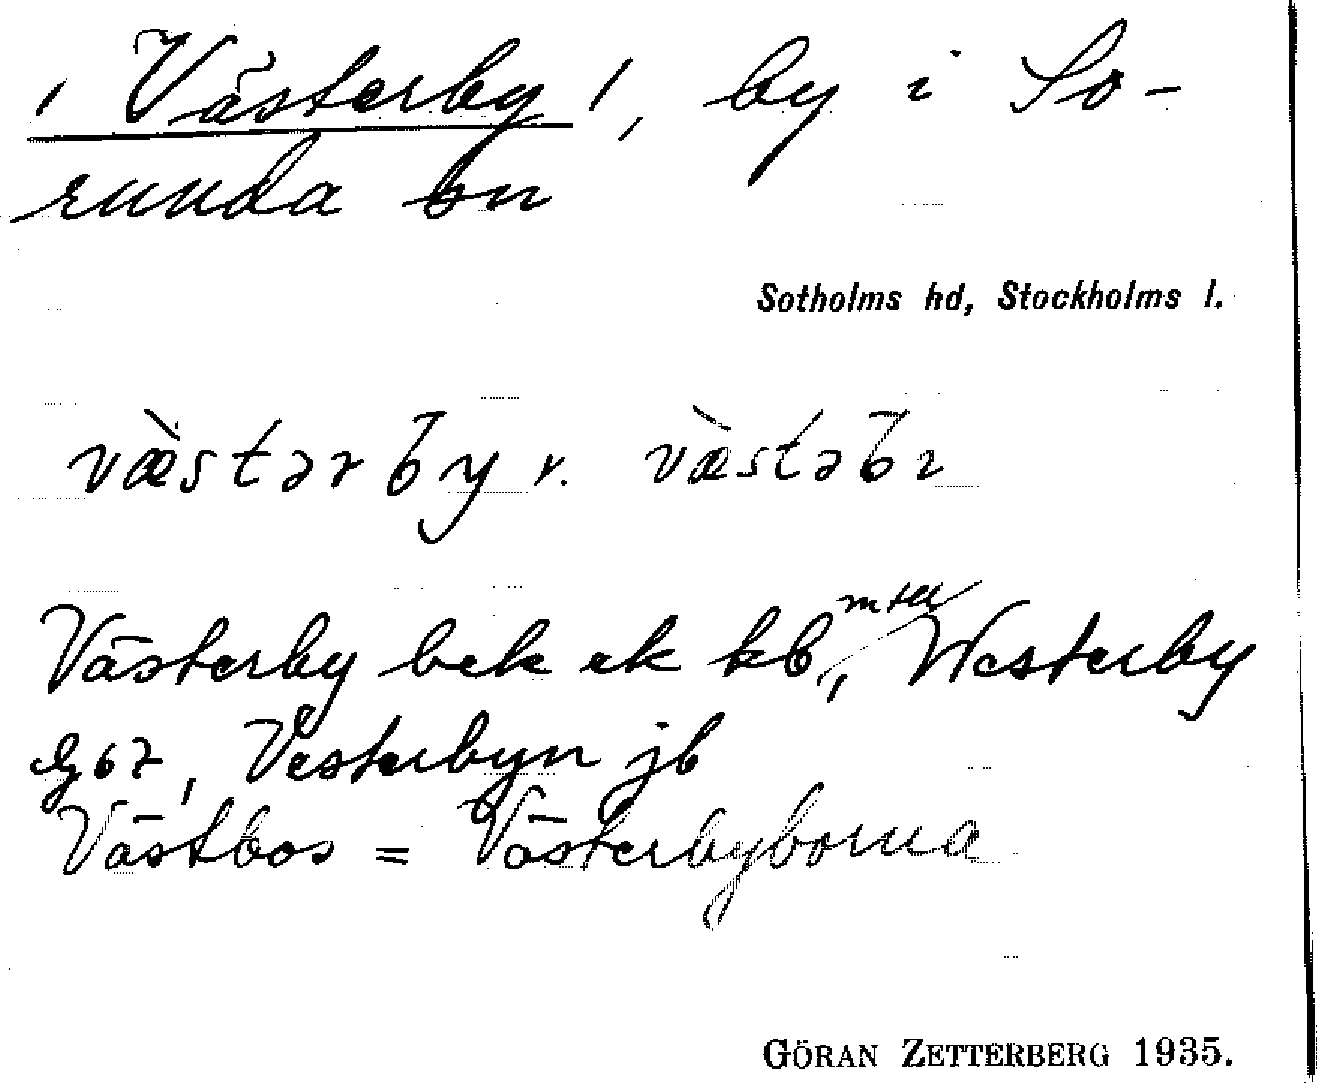 / Västerby /, by i So-
runda sn
Sotholms hd, Stockholms l.
væ̀stərby r. væ̀stəbı
Västerby bek ek kb, mtll, Westerby
G67, Vesterbyn jb
Västbos = Västerbyborna
GÖRAN ZETTERBERG 1935.